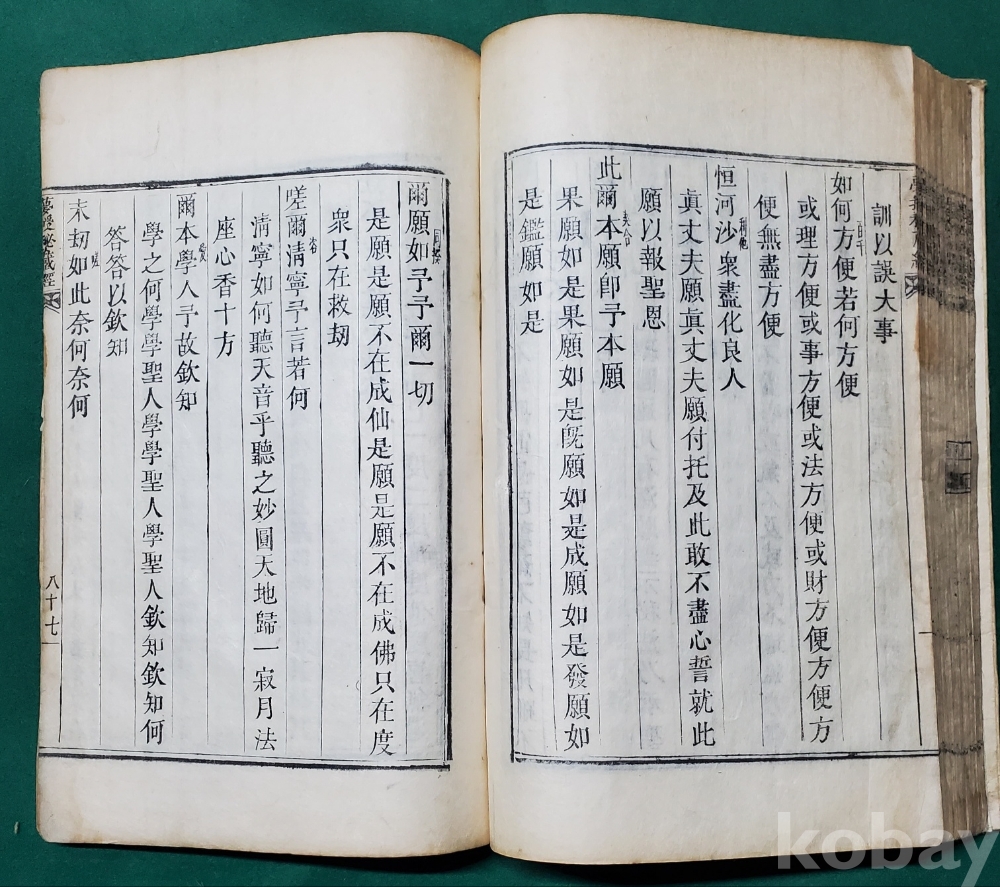 訓以誤大事
如何方便若何方便
或理方便或事方便或法方便或財方便方便方
便無盡方便
恒河沙衆盡化良人
眞丈夫願眞丈夫願付托及此敢不盡心誓就此
願以報聖恩
此爾本願卽予本願
果願如是果願如是旣願如是成願如是發願如
是鑑願如是
爾願如予予爾一切
是願是願不在成仙是願是願不在成佛只在度
衆只在救刼
嗟爾淸寧予言若何
淸寧如何聽天音乎聽之妙圓天地歸一寂月法
座心香十方
爾本學人予故欽知
學之何學學聖人學學聖人學聖人欽知欽知何
答答以欽知
末刼如此奈何奈何
八十七
kobay